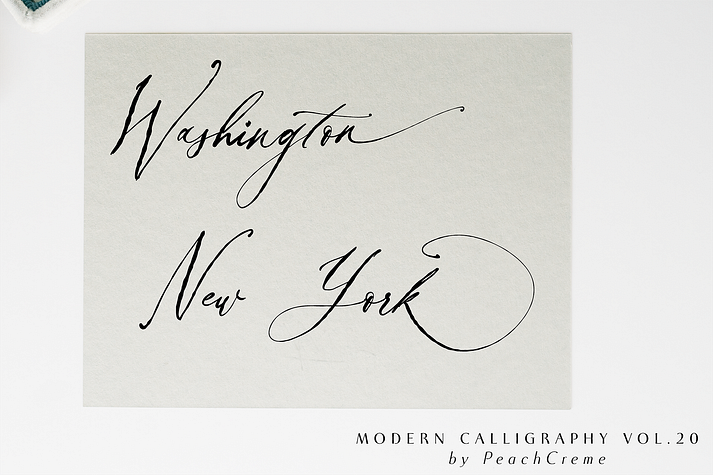 Washington
New York
MODERN CALLIGRAPHY VOL.20
by PeachCreme